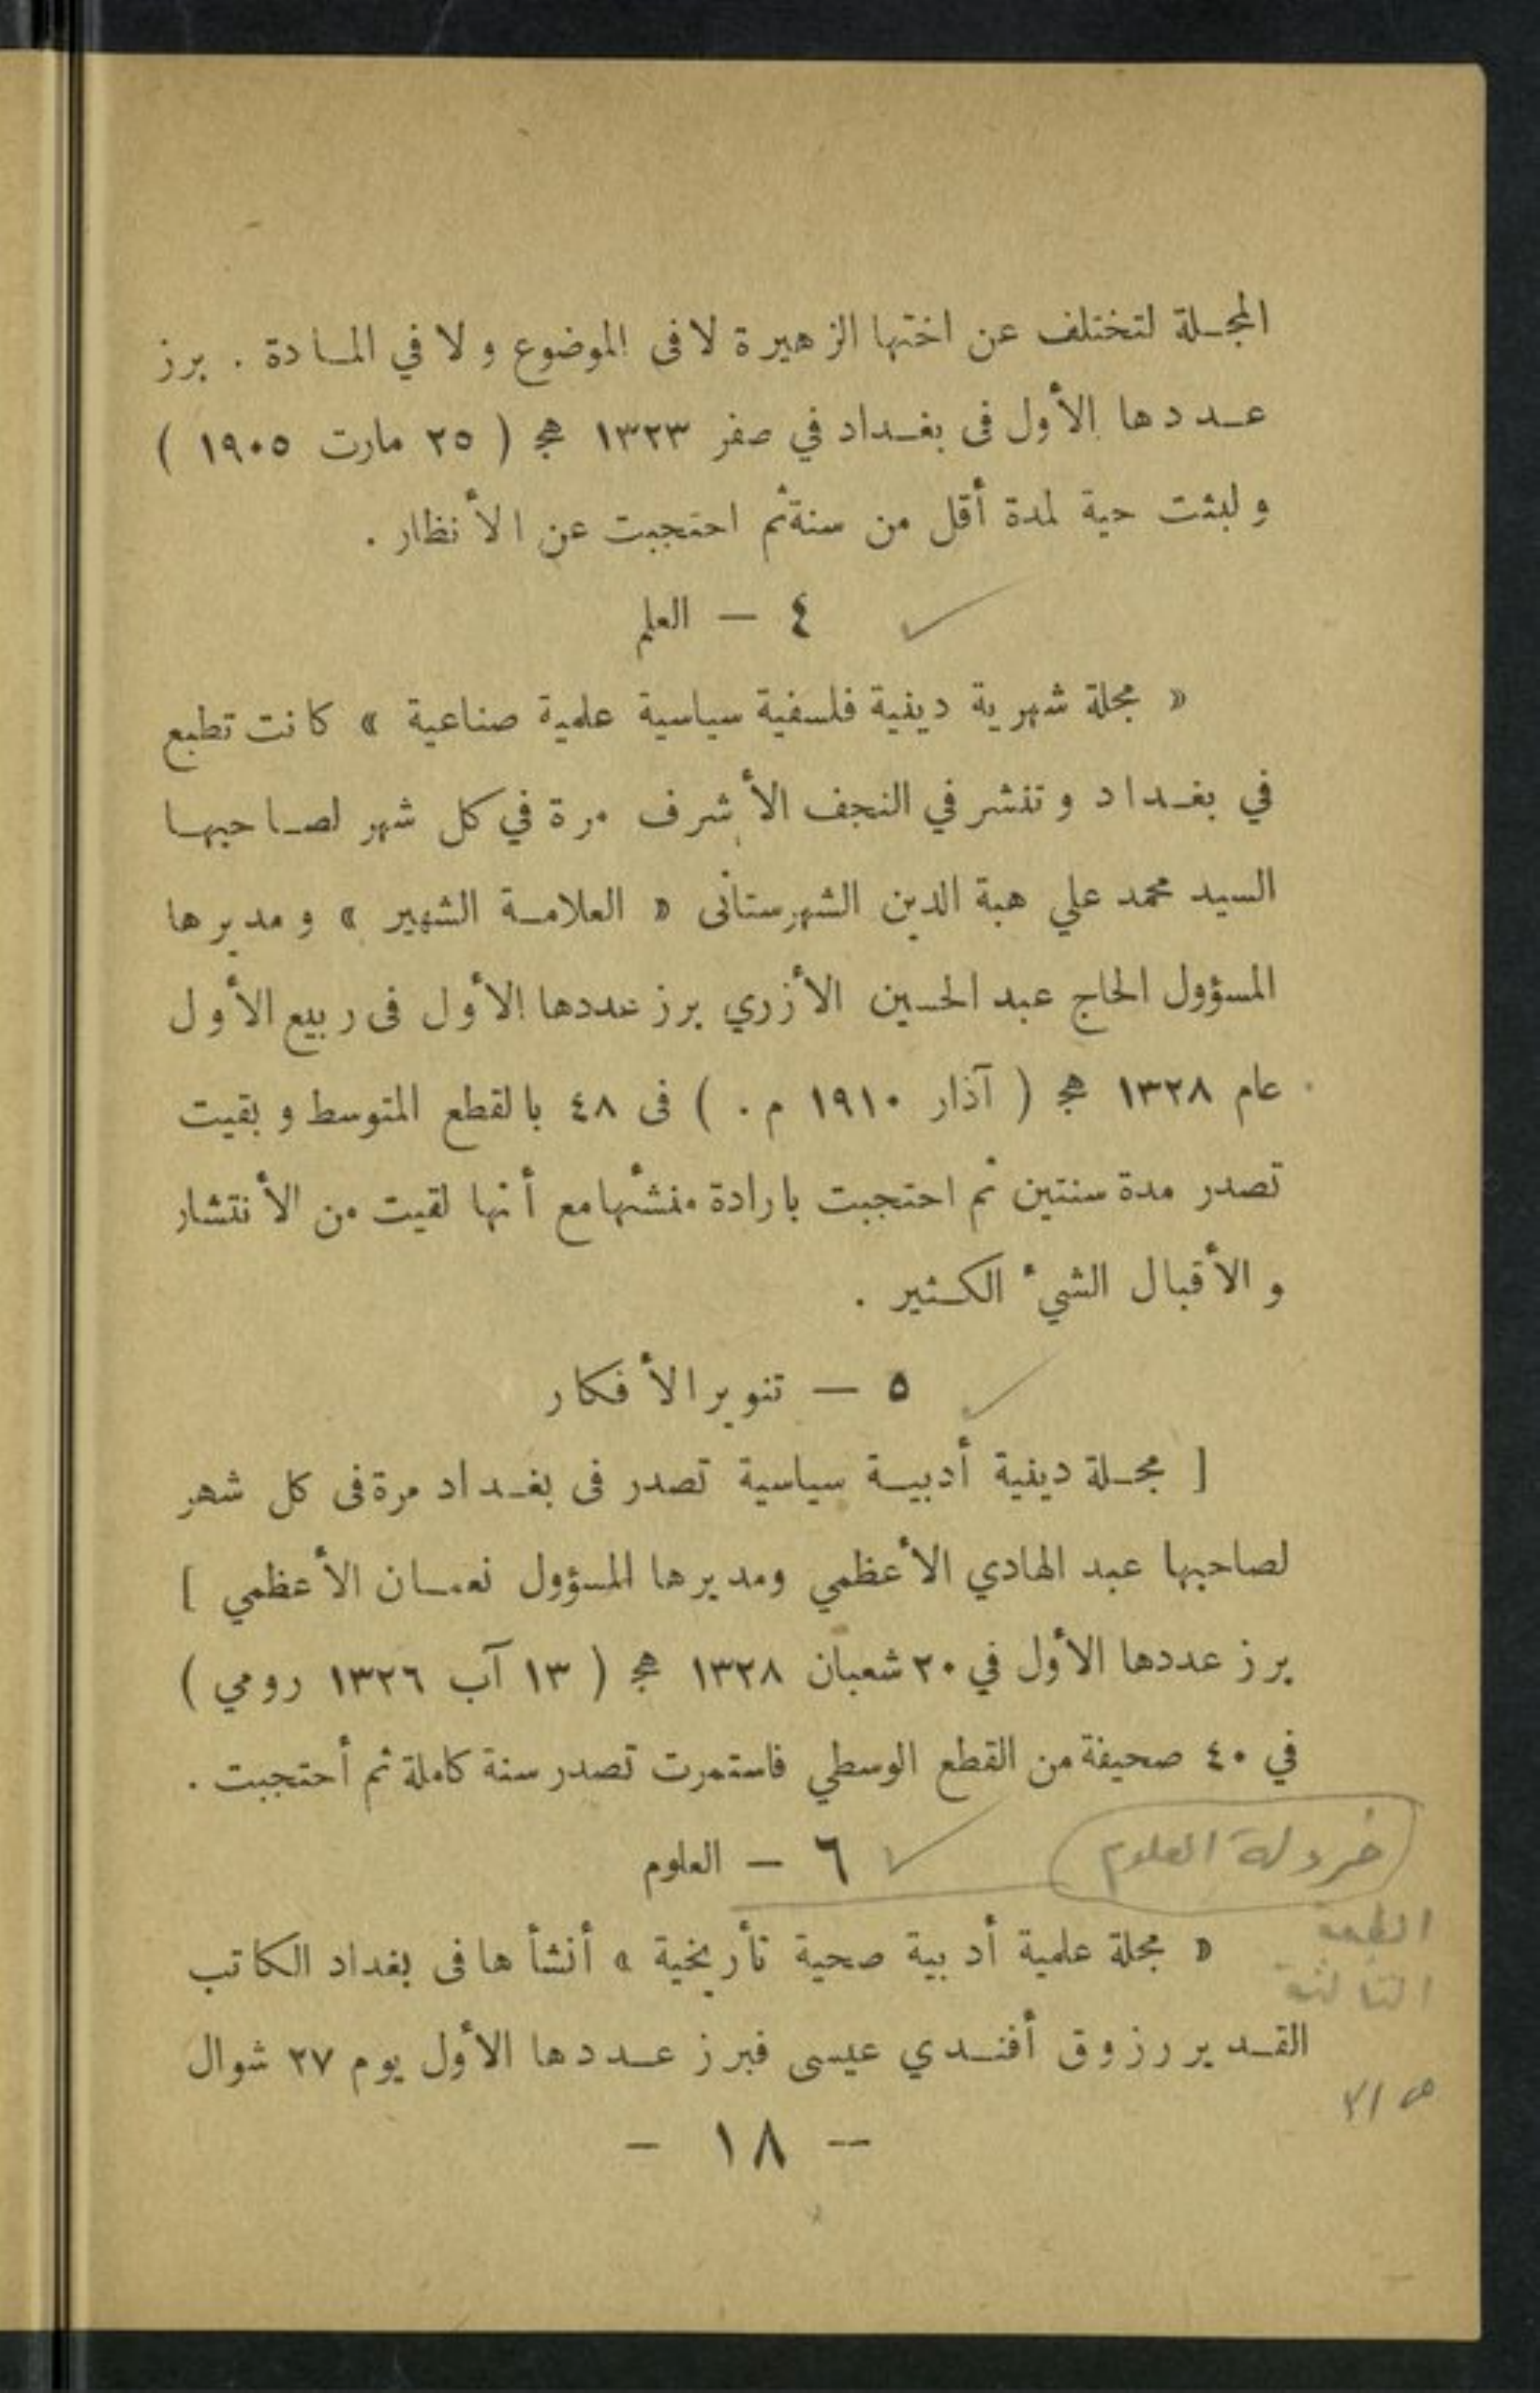 المجلة لتختلف عن اختها الزهيرة لا فى الموضوع ولا في المادة . برز
عددها الأول فى بغداد في صفر ١٣٢٣ هج ( ٢٥ مارت ١٩٠٥ )
ولبثت حية لمدة أقل من سنة ثم احتجبت عن الأنظار .
٤ — العلم
« مجلة شهرية دينية فلسفية سياسية علمية صناعية » كانت تطبع
في بغداد وتنشر في النجف الأشرف مرة في كل شهر لصاحبها
السيد محمد علي هبة الدين الشهرستانى « العلامة الشهير » ومديرها
المسؤول الحاج عبد الحسين الأزري برز عددها الأول فى ربيع الأول
عام ١٣٢٨ هج ( آذار ١٩١٠ م . ) فى ٤٨ بالقطع المتوسط وبقيت
تصدر مدة سنتين ثم احتجبت بارادة منشئها مع أنها لقيت من الأنتشار
والأقبال الشيء الكثير .
٥ — تنوير الأفكار
[ مجلة دينية أدبية سياسية تصدر فى بغداد مرة فى كل شهر
لصاحبها عبد الهادي الأعظمي ومديرها المسؤول نعمان الأعظمي ]
برز عددها الأول في ٢٠ شعبان ١٣٢٨ هج ( ١٣ آب ١٣٢٦ رومي )
في ٤٠ صحيفة من القطع الوسطي فاستمرت تصدر سنة كاملة ثم أحتجبت .
خردلة العلوم
٦ — العلوم
الطبعة
الثالثة
« مجلة علمية أدبية صحية تأريخية » أنشأها فى بغداد الكاتب
القدير رزوق أفندي عيسى فبرز عددها الأول يوم ٢٧ شوال
— ١٨ —